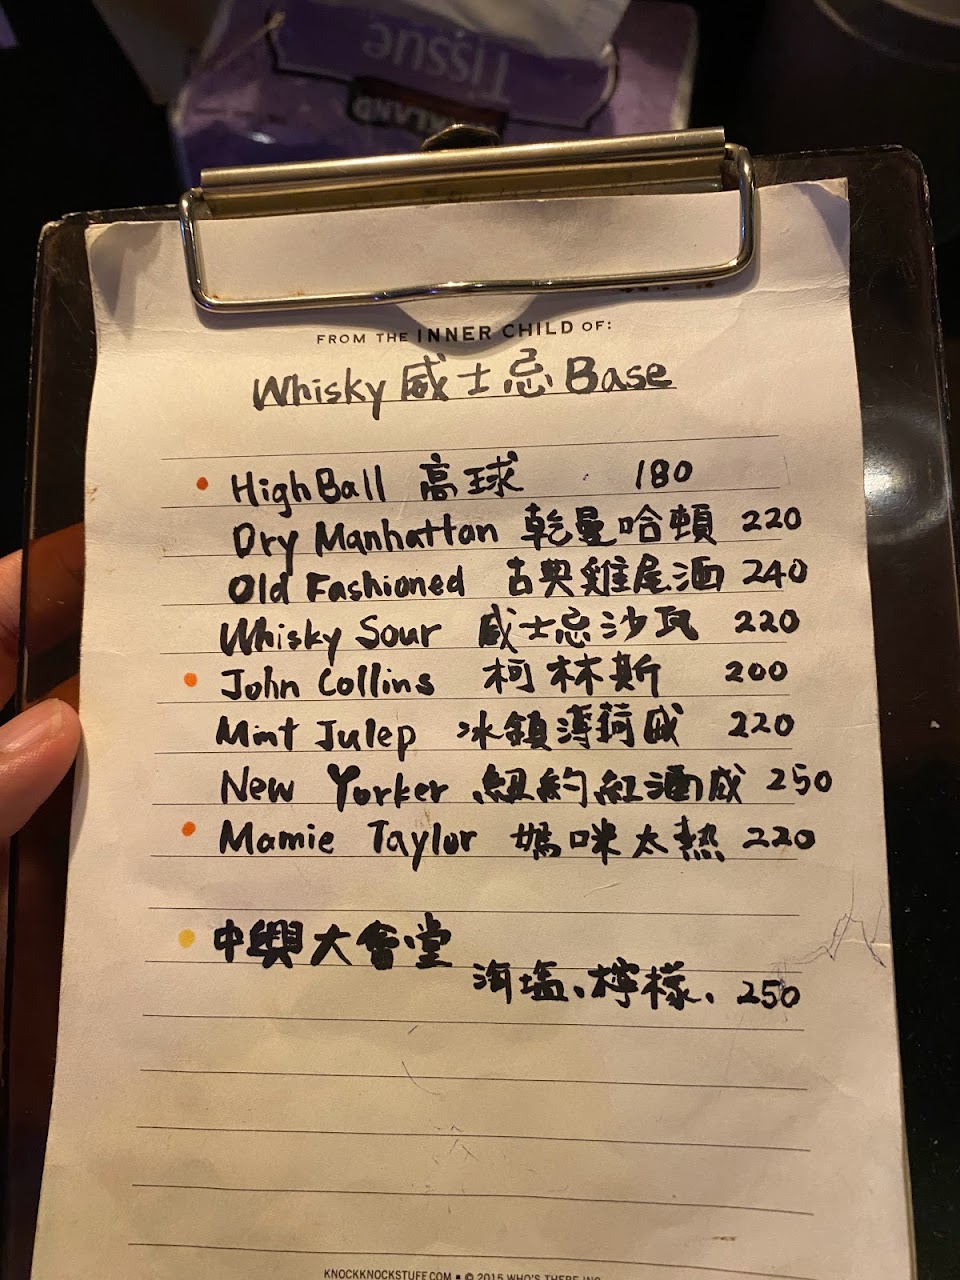 Tissue
LAND
FROM THE INNER CHILD OF:
Whisky 威士忌 Base
HighBall 高球 180
Dry Manhattan 乾曼哈頓 220
Old Fashioned 古典雞尾酒 240
Whisky Sour 威士忌沙瓦 220
John Collins 柯林斯 200
Mint Julep 冰鎮薄荷威 220
New Yorker 紐約紅酒威 250
Mamie Taylor 媽咪太熱 220
中興大會堂
海塩、檸檬、250
KNOCKKNOCKSTUFF.COM ▪ © 2015 WHO'S THERE INC.